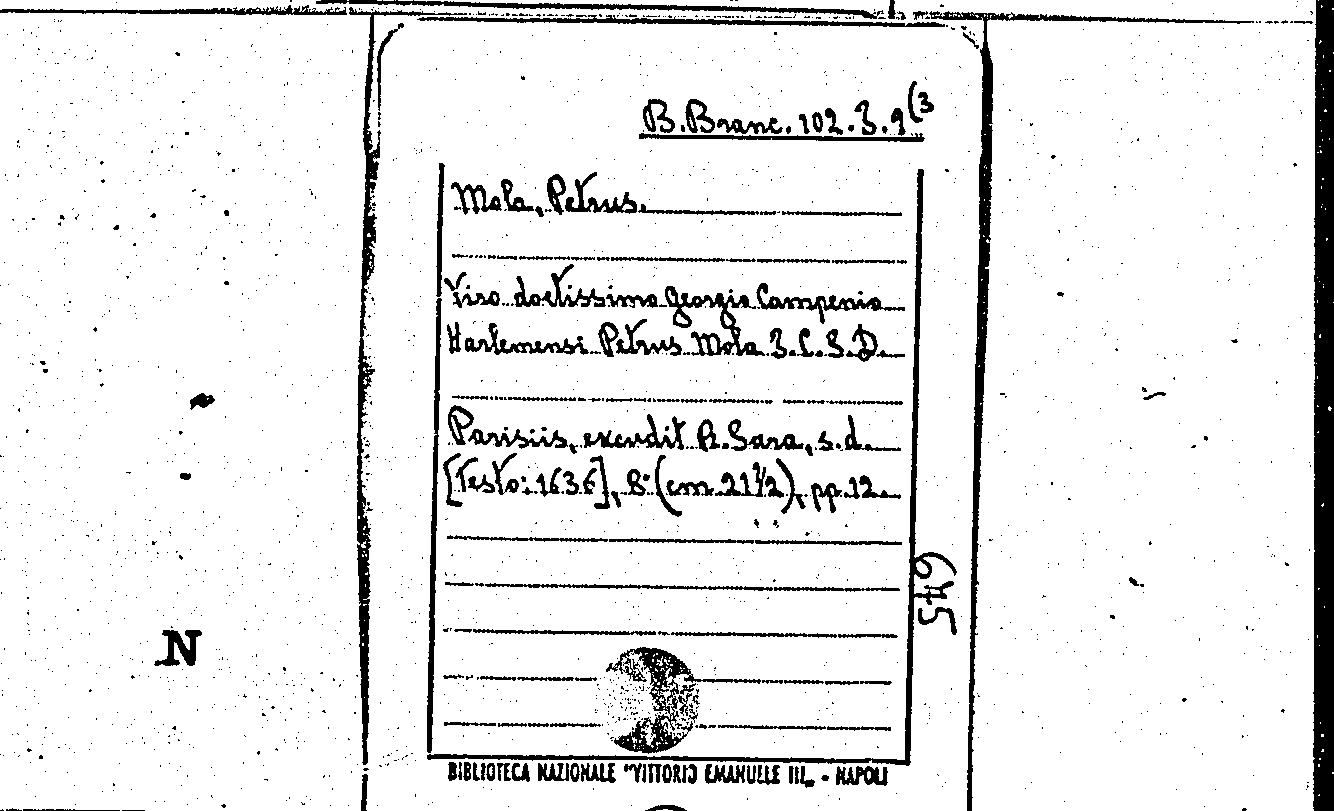 B. Branc. 102. 3. 9 (3
Mola, Petrus.
Viro doctissimo Georgio Campenio
Harlemensi Petrus Mola J.C.S.D.
Parisiis, excudit R. Sara, s.d.
[Testo: 1636], 8° (cm. 21 1/2), pp. 12.
645
N
BIBLIOTECA NAZIONALE "VITTORIO EMANUELE III„ - NAPOLI